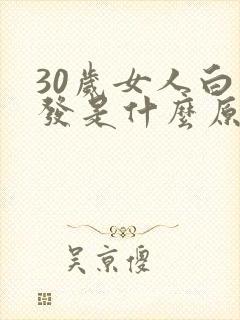 30歲女人白
發是什麼原
吴京傻